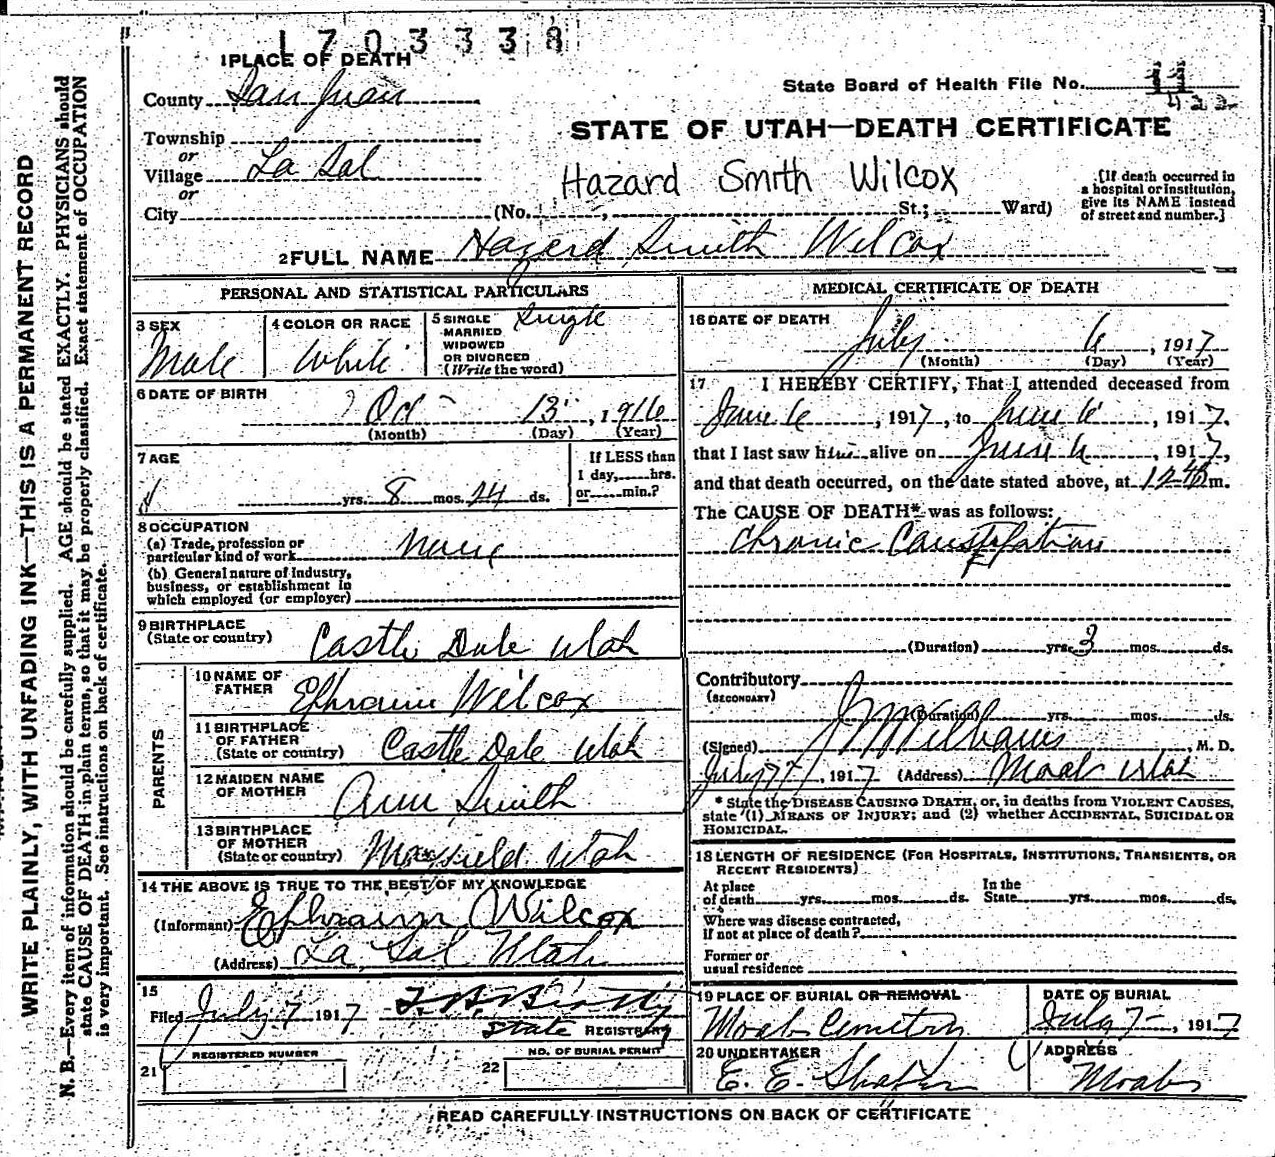 1703338
1 PLACE OF DEATH
County San Juan
State Board of Health File No. 11
422
Township
or
Village La Sal
or
City (No. , St.; Ward)
STATE OF UTAH—DEATH CERTIFICATE
Hazard Smith Wilcox
[If death occurred in
a hospital or institution,
give its NAME instead
of street and number.]
2 FULL NAME Hazard Smith Wilcox
PERSONAL AND STATISTICAL PARTICULARS
3 SEX
Male
4 COLOR OR RACE
White
5 SINGLE
MARRIED
WIDOWED
OR DIVORCED
(Write the word)
Single
6 DATE OF BIRTH
? Oct 13 , 1916
(Month) (Day) (Year)
7 AGE
yrs. 8 mos. 24 ds.
If LESS than
1 day, hrs.
or min.?
8 OCCUPATION
(a) Trade, profession or
particular kind of work None
(b) General nature of Industry,
business, or establishment in
which employed (or employer)
9 BIRTHPLACE
(State or country) Castle Dale Utah
PARENTS
10 NAME OF
FATHER Ephraim Wilcox
11 BIRTHPLACE
OF FATHER
(State or country) Castle Dale Utah
12 MAIDEN NAME
OF MOTHER Ann Smith
13 BIRTHPLACE
OF MOTHER
(State or country) Mayfield Utah
14 THE ABOVE IS TRUE TO THE BEST OF MY KNOWLEDGE
(Informant) Ephraim Wilcox
(Address) La Sal Utah
15
Filed July 7 1917
State REGISTRAR
REGISTERED NUMBER
21
NO. OF BURIAL PERMIT
22
MEDICAL CERTIFICATE OF DEATH
16 DATE OF DEATH
July 6 , 1917
(Month) (Day) (Year)
17 I HEREBY CERTIFY, That I attended deceased from
June 6 , 1917, to June 6 , 1917,
that I last saw him alive on June 6 , 1917,
and that death occurred, on the date stated above, at 12 m.
The CAUSE OF DEATH* was as follows:
Chronic Constipation
(Duration) yrs. 3 mos. ds.
Contributory
(SECONDARY)
(Duration) yrs. mos. ds.
(Signed) J W Williams , M. D.
July 7 , 1917 (Address) Moab Utah
* State the DISEASE CAUSING DEATH, or, in deaths from VIOLENT CAUSES,
state (1) MEANS OF INJURY; and (2) whether ACCIDENTAL, SUICIDAL OR
HOMICIDAL.
18 LENGTH OF RESIDENCE (FOR HOSPITALS, INSTITUTIONS, TRANSIENTS, OR
RECENT RESIDENTS)
At place
of death yrs. mos. ds.
In the
State yrs. mos. ds.
Where was disease contracted,
if not at place of death?
Former or
usual residence
19 PLACE OF BURIAL OR REMOVAL
Moab Cemetry
DATE OF BURIAL
July 7 , 1917
20 UNDERTAKER
E. E.
ADDRESS
Moab
READ CAREFULLY INSTRUCTIONS ON BACK OF CERTIFICATE
WRITE PLAINLY, WITH UNFADING INK—THIS IS A PERMANENT RECORD
N. B.—Every item of information should be carefully supplied. AGE should be stated EXACTLY. PHYSICIANS should
state CAUSE OF DEATH in plain terms, so that it may be properly classified. Exact statement of OCCUPATION
is very important. See instructions on back of certificate.